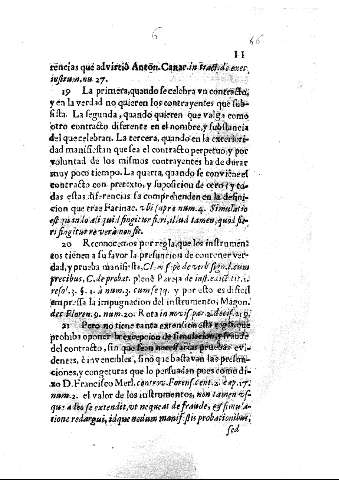 6 66
11
rencias que advirtiò Anton. Canar. in tract. de exec.
instrum. nu 27.
19 La primera, quando se celebra vn contracto,
y en la verdad no quieren los contrayentes que sub-
sista. La segunda, quando quieren que valga como
otro contracto diferente en el nombre, y substancia
del que celebran. La tercera, quando en la exteriori-
dad manifiestan que sea el contracto perpetuo, y por
voluntad de los mismos contrayentes ha de durar
muy poco tiempo. La quarta, quando se convièhe el
contracto con pretexto, y suposicion de otro; y to-
das estas diferencias se comprehenden en la defini-
cion que trae Farinac. vbi supra num. 4. Simulatio
est quando aliquid fingitur fieri, illud tamen, quod fie-
ri fingitur re vera non sit.
20 Reconocemos por regla, que los instrumen-
tos tienen à su favor la presumpcion de contener ver-
dad, y prueba manifiesta,
precibus, C. de probat. plenè Pareja de inst. edit. tit. 1.
resol. 3. §. 1. à num. 3. y por esto es dificil
empressa la impugnacion del instrumento, Magon.
dec Floren. 9. num. 20. Rota in novis. par. 2. decis. 219.
21 Pero no tiene tanta extension esta regla, que
prohiba oponer la excepcion de simulacion, y fraude
del contracto, sin que sean necessarias pruebas evi-
dentes, è invencibles, sino que bastavan las presun-
ciones, y congeturas que lo persuadan pues como di-
xo D. Francisco Merl. controv. Forens. cent. 2. cap. 17.
num. 2. el valor de los instrumentos, non tamen vs-
que adeo se extendit, vt nequeat de fraude, et simula-
tione redargui, idque nedum manifestis probationibus,
sed